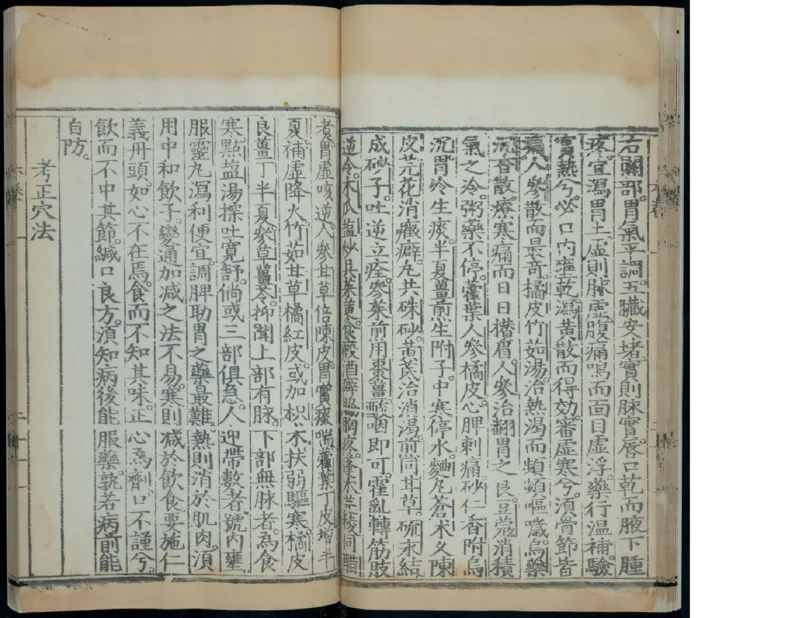 右關部胃氣平調五臟安堵實則脉實唇口乾而腋下腫
疼宜瀉胃土虛則脉虛腹痛鳴而面目虛浮藥行溫補驗
實熱兮必口內壅乾瀉黃散而得効審虛寒兮須骨節皆
痛人參散而最奇橘皮竹茹湯治熱渴而頻頻嘔噦烏藥
沉香散療寒痛而日日攢眉人參治翻胃之良豆蔻消積
氣之冷粥藥不停藿葉人參橘皮心脾刺痛砂仁香附烏
沉胃冷生痰半夏薑煎生附子中寒停水麯丸蒼术久陳
皮芫花消癥癖丸共硃砂黃芪治消渴煎同甘草硫末結
成砂子吐逆立痊參茱煎用棗薑酸咽即可霍亂轉筋肢
逆冷木瓜鹽炒吳茱萸食瘕酒癖脇胸疼蓬术芫稜同醋
煮胃虛咳逆人參甘草倍陳皮胃實痰喘藿葉丁皮增半
夏補虛降火竹茹甘草橘紅皮或加枳术扶弱驅寒橘皮
良薑丁半夏參草薑苓抑聞上部有脉下部無脉者為食
寒點鹽湯探吐寬舒倘或三部俱急人迎帶數者號內壅
服靈丸瀉利便宜調脾助胃之藥最難熱則消於肌肉須
用中和飲子變通加減之法不易寒則減於飲食要施仁
義丹頭如心不在焉食而不知其味正心為劑口不謹兮
飲而不中其節緘口良方須知病後能服藥孰若病前能
自防
考正穴法